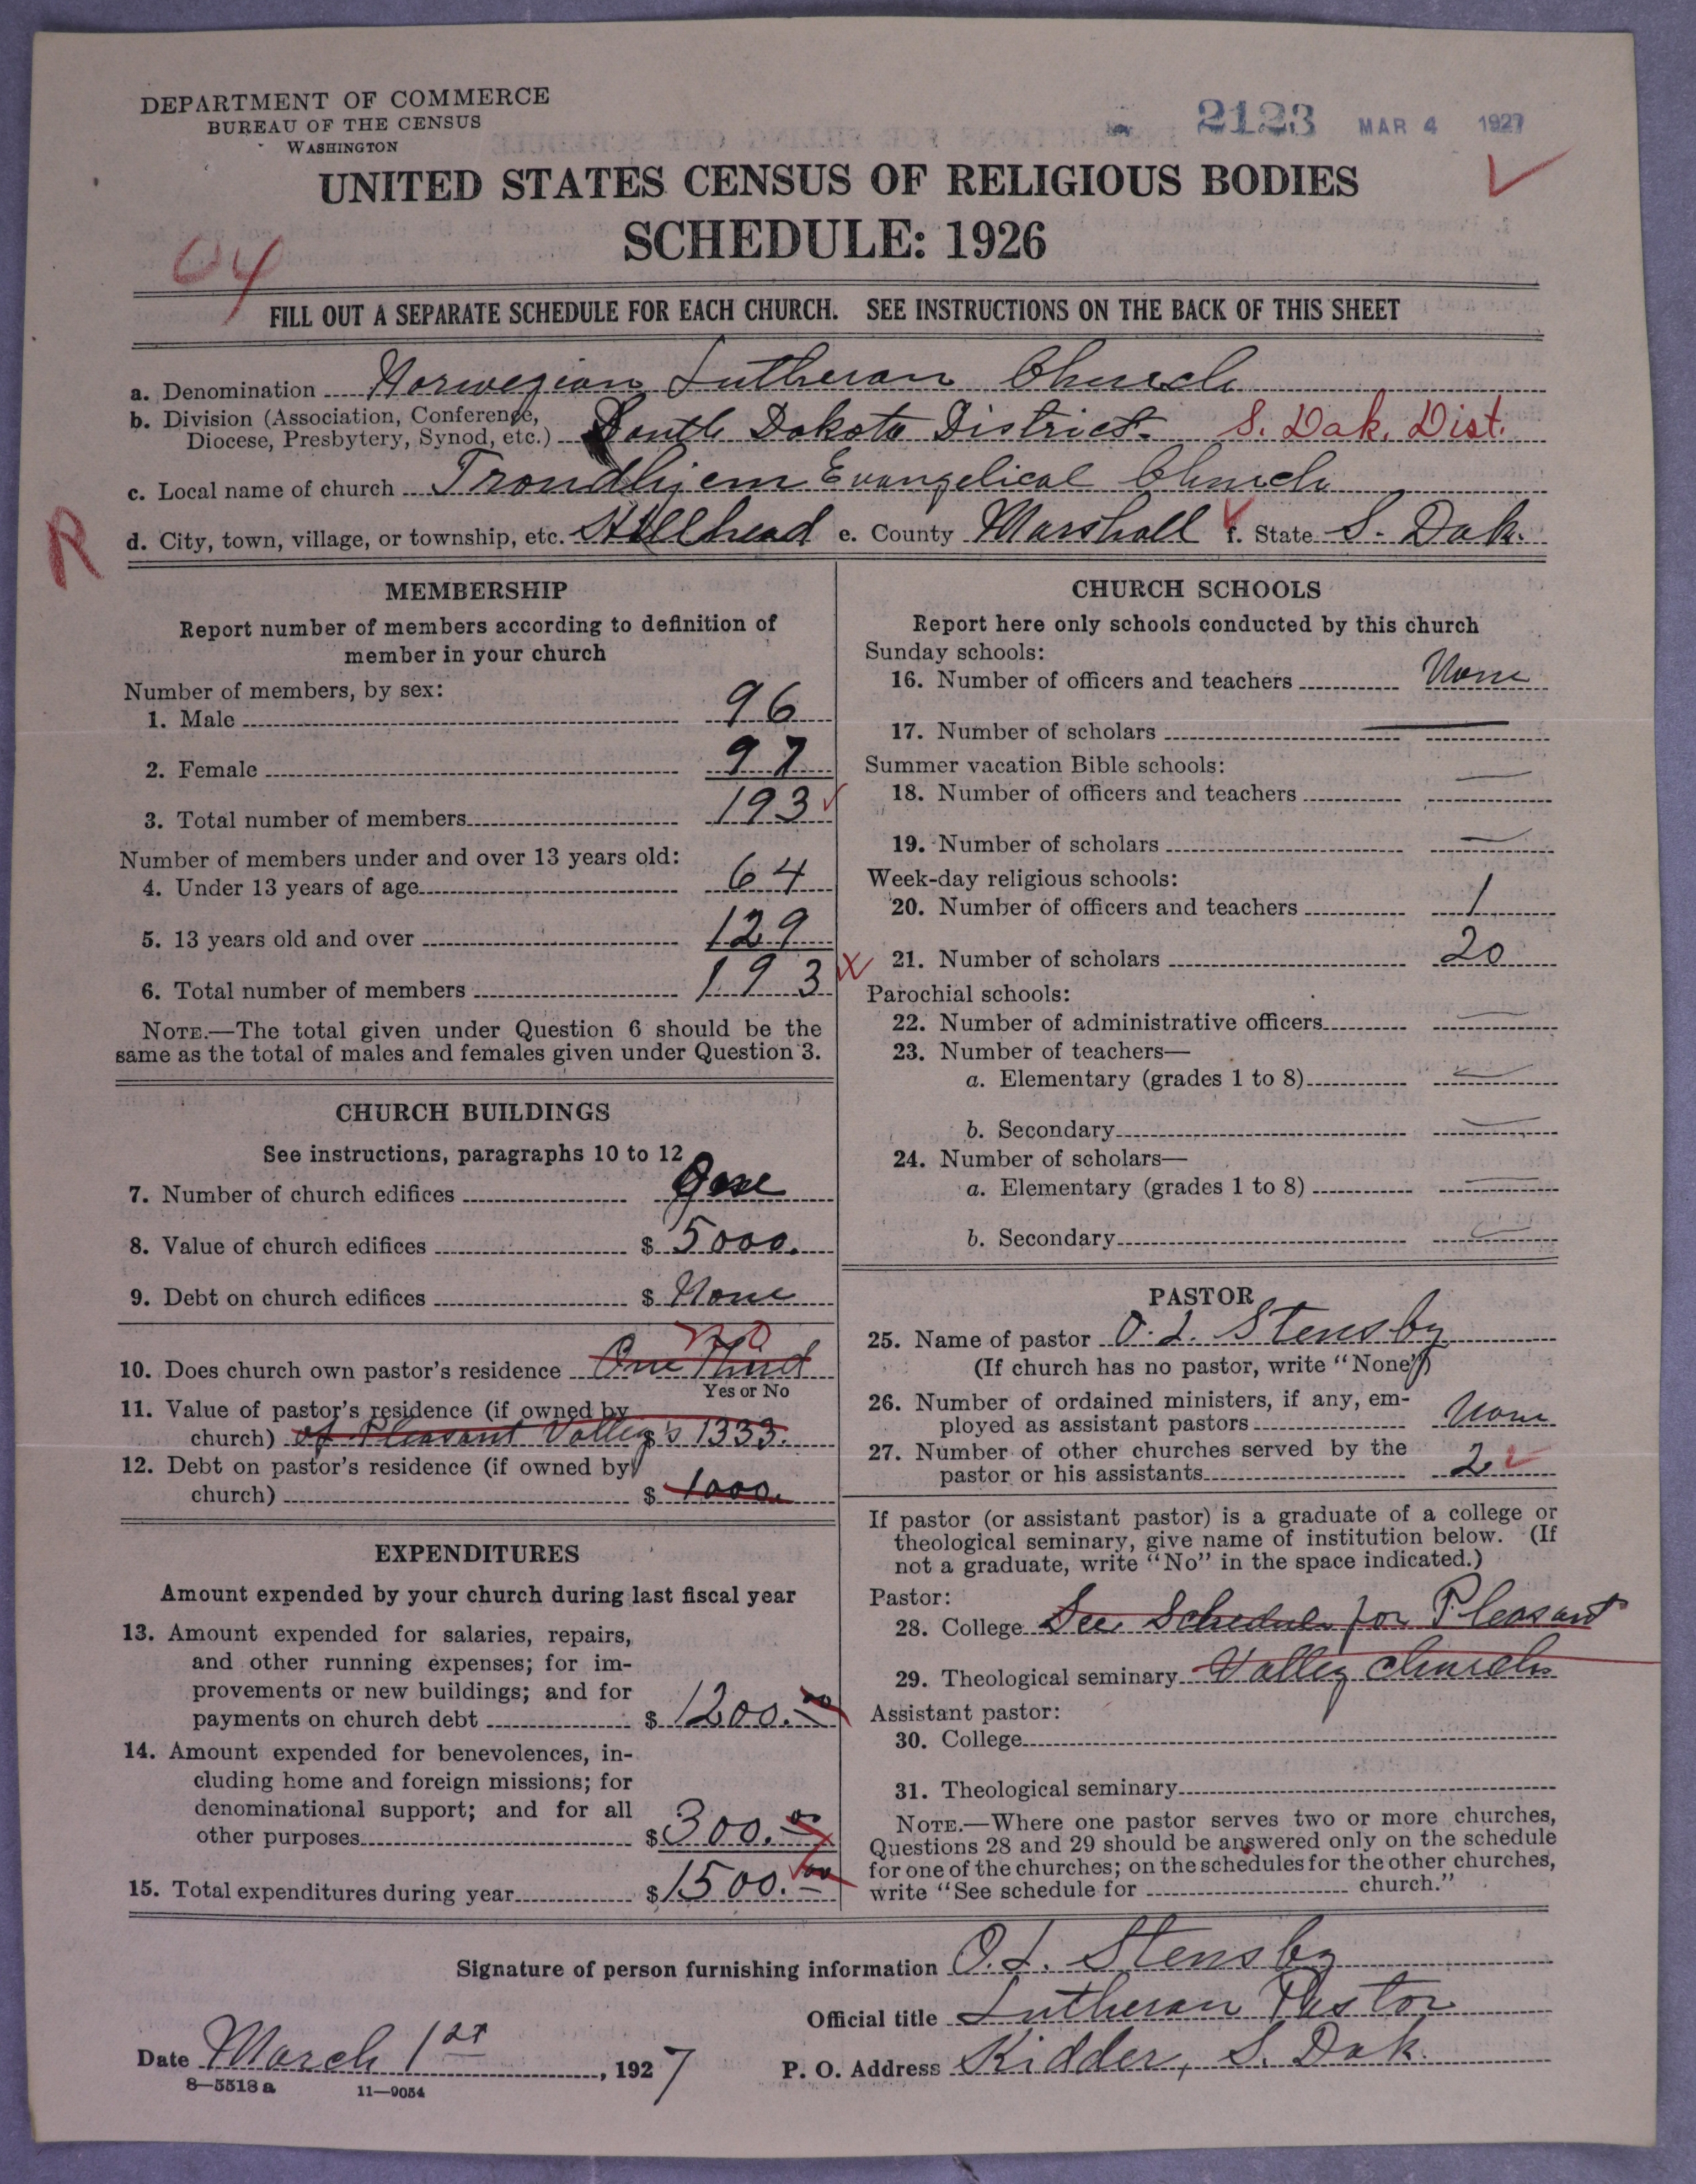 DEPARTMENT OF COMMERCE
BUREAU OF THE CENSUS
WASHINGTON
2123 MAR 4 1927
UNITED STATES CENSUS OF RELIGIOUS BODIES
SCHEDULE: 1926
04
FILL OUT A SEPARATE SCHEDULE FOR EACH CHURCH. SEE INSTRUCTIONS ON THE BACK OF THIS SHEET
a. Denomination Norwegian Lutheran Church
b. Division (Association, Conference,
Diocese, Presbytery, Synod, etc.) South Dakota District. S. Dak. Dist.
c. Local name of church Trondhjem Evangelical Church
R
d. City, town, village, or township, etc. Stillhead e. County Marshall f. State S. Dak.
MEMBERSHIP
Report number of members according to definition of
member in your church
Number of members, by sex:
1. Male 96
2. Female 97
3. Total number of members 193
Number of members under and over 13 years old:
4. Under 13 years of age 64
5. 13 years old and over 129
6. Total number of members 193
NOTE.—The total given under Question 6 should be the
same as the total of males and females given under Question 3.
CHURCH BUILDINGS
See instructions, paragraphs 10 to 12
7. Number of church edifices One
8. Value of church edifices $ 5000.
9. Debt on church edifices $ None
10. Does church own pastor's residence One Third no
Yes or No
11. Value of pastor's residence (if owned by
church) of Pleasant Valley's $ 1333.
12. Debt on pastor's residence (if owned by
church) $ 1000.
EXPENDITURES
Amount expended by your church during last fiscal year
13. Amount expended for salaries, repairs,
and other running expenses; for im-
provements or new buildings; and for
payments on church debt $ 1200.00
14. Amount expended for benevolences, in-
cluding home and foreign missions; for
denominational support; and for all
other purposes $ 300.00
15. Total expenditures during year $ 1500.00
CHURCH SCHOOLS
Report here only schools conducted by this church
Sunday schools:
16. Number of officers and teachers None
17. Number of scholars —
Summer vacation Bible schools:
18. Number of officers and teachers —
19. Number of scholars —
Week-day religious schools:
20. Number of officers and teachers 1
21. Number of scholars 20
Parochial schools:
22. Number of administrative officers —
23. Number of teachers—
a. Elementary (grades 1 to 8) —
b. Secondary —
24. Number of scholars—
a. Elementary (grades 1 to 8) —
b. Secondary —
PASTOR
25. Name of pastor O. L. Stensby
(If church has no pastor, write "None")
26. Number of ordained ministers, if any, em-
ployed as assistant pastors None
27. Number of other churches served by the
pastor or his assistants 2
If pastor (or assistant pastor) is a graduate of a college or
theological seminary, give name of institution below. (If
not a graduate, write "No" in the space indicated.)
Pastor:
28. College See Schedule for Pleasant
29. Theological seminary Valley church
Assistant pastor:
30. College
31. Theological seminary
NOTE.—Where one pastor serves two or more churches,
Questions 28 and 29 should be answered only on the schedule
for one of the churches; on the schedules for the other churches,
write "See schedule for church."
Signature of person furnishing information O. L. Stensby
Official title Lutheran Pastor
Date March 1st, 1927 P. O. Address Kidder, S. Dak.
8—5518 a 11—9054